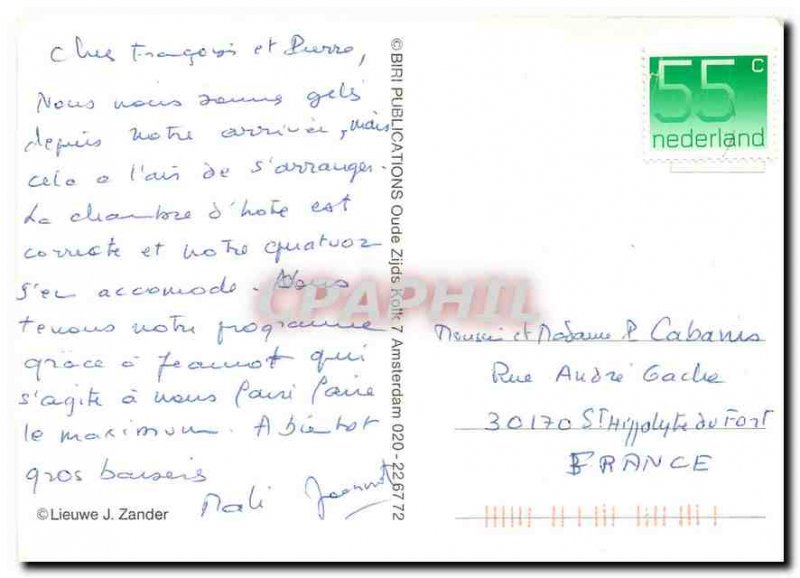 Chers François et Pierre,
Nous nous sommes gelés
depuis notre arrivée, mais
cela a l'air de s'arranger.
La chambre d'hôte est
correcte et notre quatuor
s'en accomode. Nous
tenons notre programme
grâce à Jeannot qui
s'agite à nous faire
le maximum. A bientôt
gros baisers
Mali Jeannot
© Lieuwe J. Zander
© BIRI PUBLICATIONS Oude Zijds Kolk 7 Amsterdam 020-22 67 72
CPAPHIL
55 c
nederland
Monsieur et Madame P Cabanis
Rue André Gache
30170 St Hippolyte du Fort
FRANCE